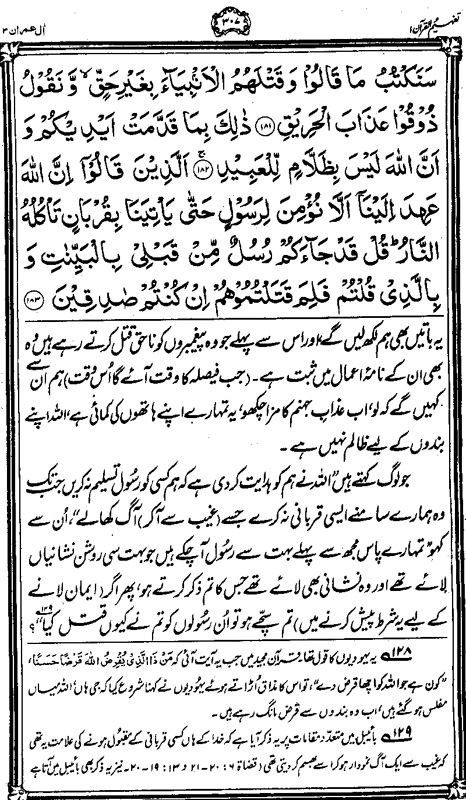 تفہیم القرآن ۱
۳۰۷
اٰل عمران ۳
سَنَكْتُبُ مَا قَالُوْا وَقَتْلَهُمُ الْاَنْۢبِيَآءَ بِغَيْرِ حَقٍّ ۙ وَّ نَقُوْلُ
ذُوْقُوْا عَذَابَ الْحَرِيْقِ ﴿۱۸۱﴾ ذٰلِكَ بِمَا قَدَّمَتْ اَيْدِيْكُمْ وَ
اَنَّ اللّٰهَ لَيْسَ بِظَلَّامٍ لِّلْعَبِيْدِ ﴿۱۸۲﴾ۚ اَلَّذِيْنَ قَالُوْٓا اِنَّ اللّٰهَ
عَهِدَ اِلَيْنَآ اَلَّا نُؤْمِنَ لِرَسُوْلٍ حَتّٰى يَاْتِيَنَا بِقُرْبَانٍ تَاْكُلُهُ
النَّارُ ؕ قُلْ قَدْ جَآءَكُمْ رُسُلٌ مِّنْ قَبْلِيْ بِالْبَيِّنٰتِ وَ
بِالَّذِيْ قُلْتُمْ فَلِمَ قَتَلْتُمُوْهُمْ اِنْ كُنْتُمْ صٰدِقِيْنَ ﴿۱۸۳﴾
یہ باتیں بھی ہم لکھ لیں گے، اور اس سے پہلے جو وہ پیغمبروں کو ناحق قتل کرتے رہے ہیں وہ
بھی ان کے نامۂ اعمال میں ثبت ہے۔ (جب فیصلہ کا وقت آئے گا اُس وقت) ہم ان سے
کہیں گے کہ لو، اب عذابِ جہنم کا مزا چکھو، یہ تمہارے اپنے ہاتھوں کی کمائی ہے، اللہ اپنے
بندوں کے لیے ظالم نہیں ہے۔
جو لوگ کہتے ہیں "اللہ نے ہم کو ہدایت کر دی ہے کہ ہم کسی کو رسول تسلیم نہ کریں جب تک
وہ ہمارے سامنے ایسی قربانی نہ کرے جسے (غیب سے آکر) آگ کھالے"، اُن سے
کہو، تمہارے پاس مجھ سے پہلے بہت سے رسول آچکے ہیں جو بہت سی روشن نشانیاں
لائے تھے اور وہ نشانی بھی لائے تھے جس کا تم ذکر کرتے ہو، پھر اگر (ایمان لانے
کے لیے یہ شرط پیش کرنے میں) تم سچے ہو تو اُن رسولوں کو تم نے کیوں قتل کیا"؟ ۱۲۹
۱۲۸ یہ یہودیوں کا قول تھا۔ قرآن مجید میں جب یہ آیت آئی کہ مَنْ ذَا الَّذِيْ يُقْرِضُ اللّٰهَ قَرْضًا حَسَنًا،
"کون ہے جو اللہ کو اچھا قرض دے"، تو اس کا مذاق اُڑاتے ہوئے یہودیوں نے کہنا شروع کیا کہ جی ہاں، اللہ میاں
مفلس ہو گئے ہیں، اب وہ بندوں سے قرض مانگ رہے ہیں۔
۱۲۹ بائیبل میں متعدد مقامات پر یہ ذکر آیا ہے کہ خدا کے ہاں کسی قربانی کے مقبول ہونے کی علامت یہ تھی
کہ غیب سے ایک آگ نمودار ہو کر اسے بھسم کر دیتی تھی (قضاة ۶: ۲۰-۲۱ و ۱۳: ۱۹-۲۰)۔ نیز یہ ذکر بھی بائیبل میں آتا ہے